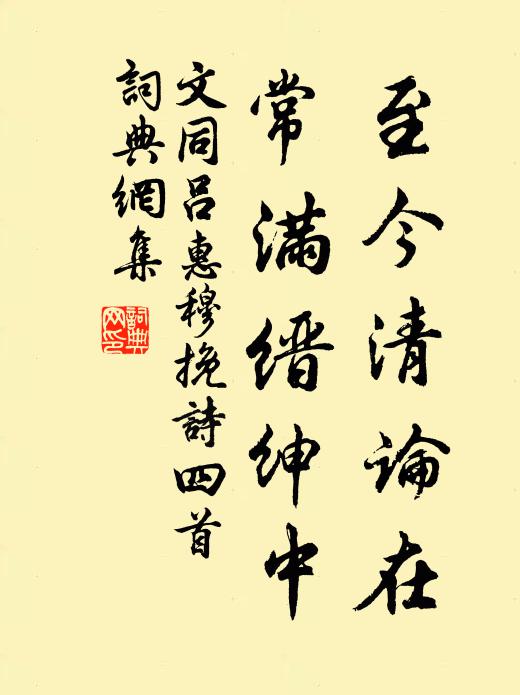 至今清論在
常滿縉紳中
文同吕惠穆挽詩四首
詞典網集
詞典网印